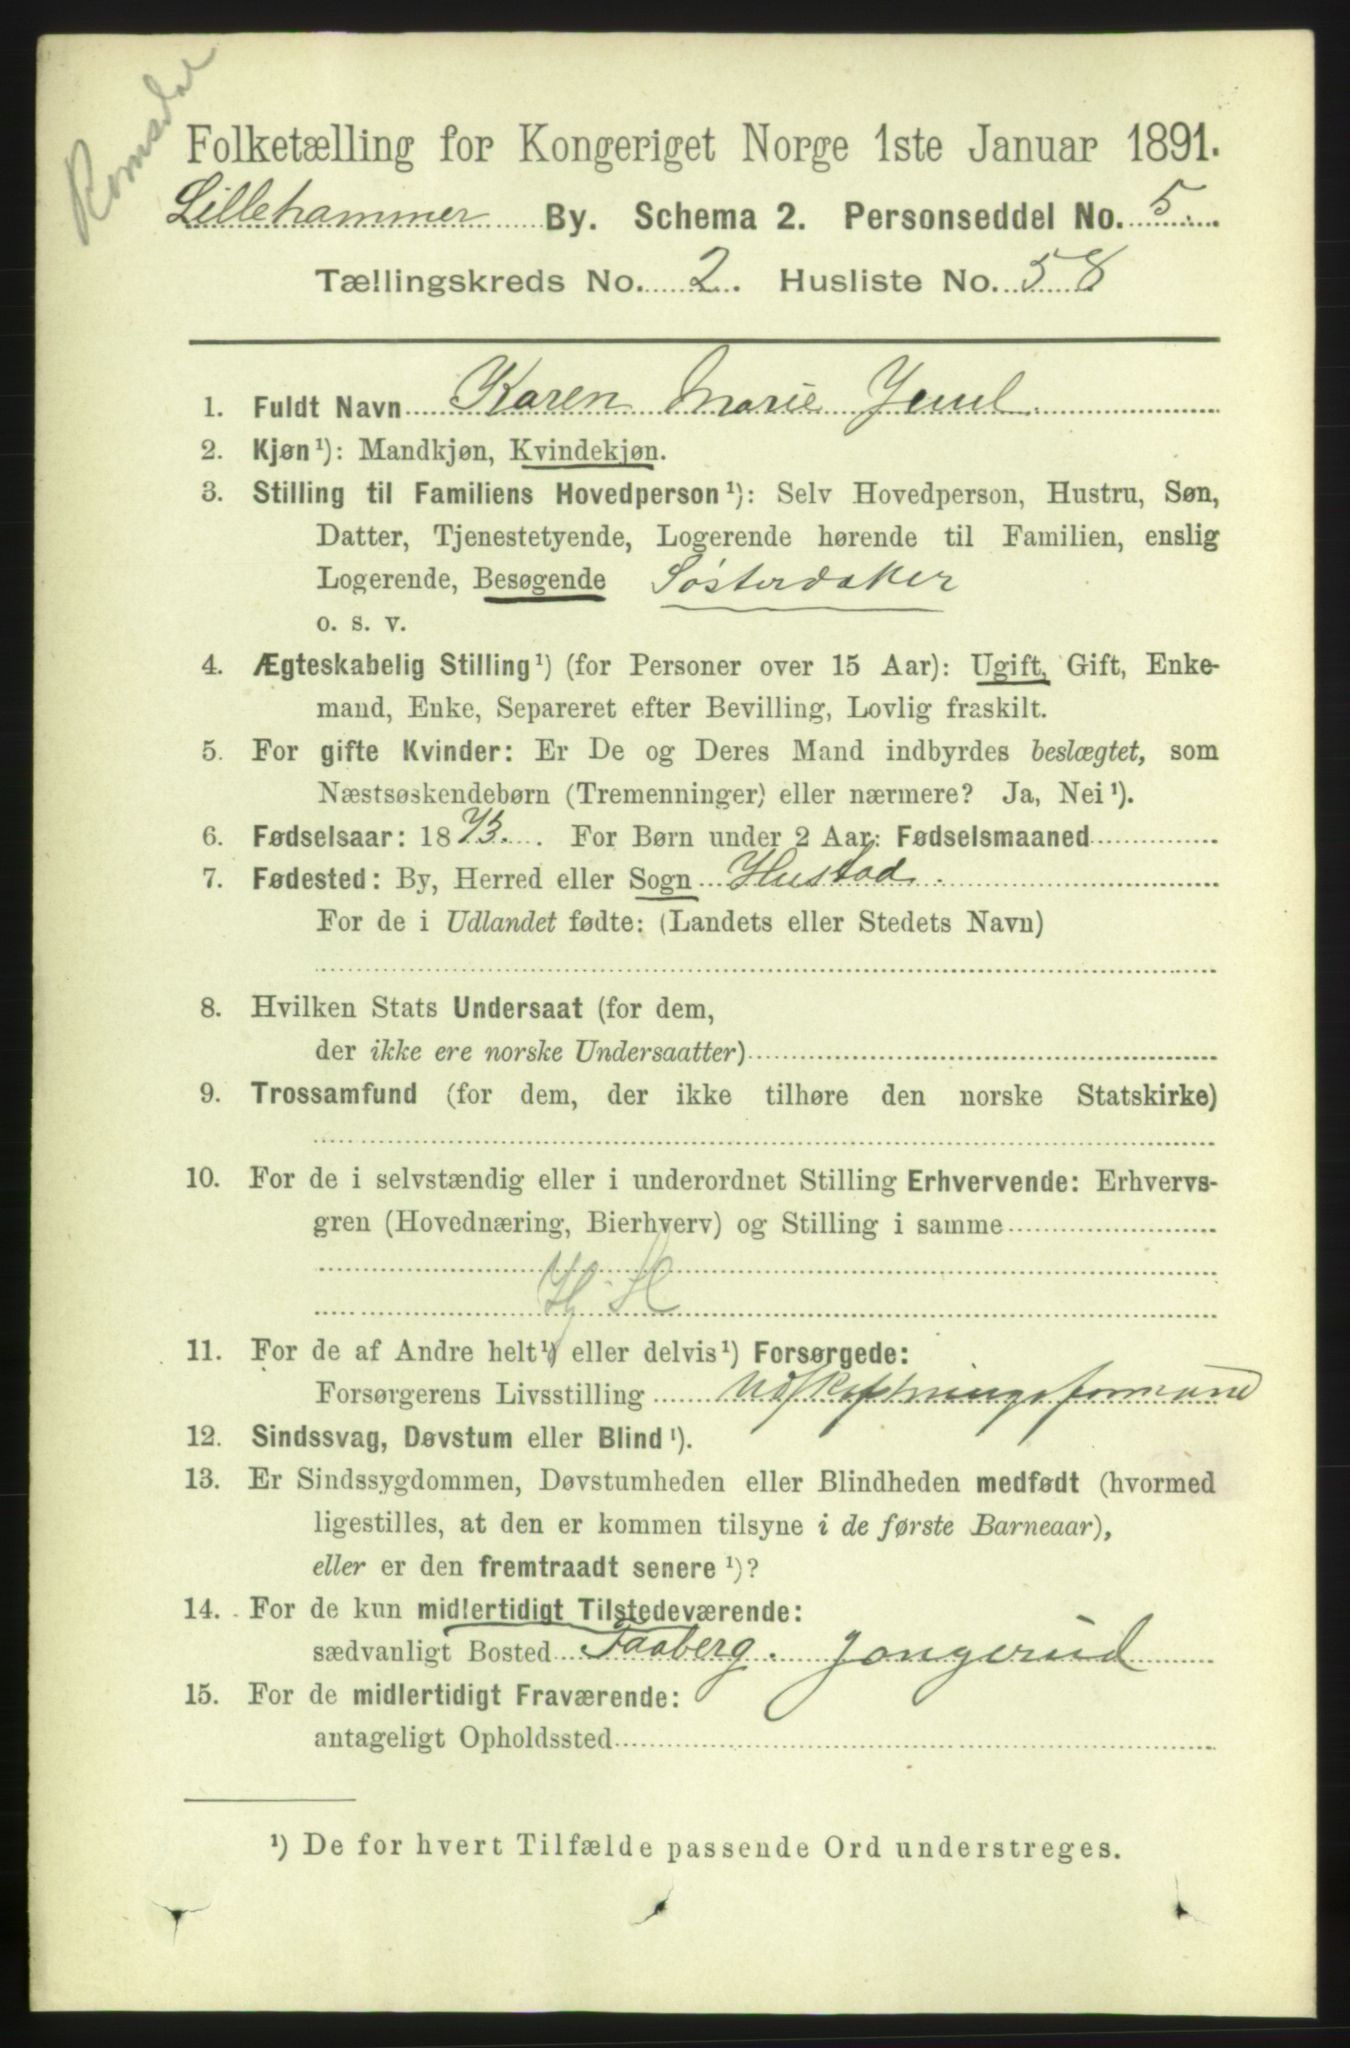 Romsdal
Folketælling for Kongeriget Norge 1ste Januar 1891.
Lillehammer By. Schema 2. Personseddel No. 5.
Tællingskreds No. 2. Husliste No. 58
1. Fuldt Navn Karen Marie
2. Kjøn¹): Mandkjøn, Kvindekjøn.
3. Stilling til Familiens Hovedperson¹): Selv Hovedperson, Hustru, Søn,
Datter, Tjenestetyende, Logerende hørende til Familien, enslig
Logerende, Besøgende
o. s. v.
4. Ægteskabelig Stilling¹) (for Personer over 15 Aar): Ugift, Gift, Enke-
mand, Enke, Separeret efter Bevilling, Lovlig fraskilt.
5. For gifte Kvinder: Er De og Deres Mand indbyrdes beslægtet, som
Næstsøskendebørn (Tremenninger) eller nærmere? Ja, Nei¹).
6. Fødselsaar: 1873. For Børn under 2 Aar: Fødselsmaaned
7. Fødested: By, Herred eller Sogn Hustad.
For de i Udlandet fødte: (Landets eller Stedets Navn)
8. Hvilken Stats Undersaat (for dem,
der ikke ere norske Undersaatter)
9. Trossamfund (for dem, der ikke tilhøre den norske Statskirke)
10. For de i selvstændig eller i underordnet Stilling Erhvervende: Erhvervs-
gren (Hovednæring, Bierhverv) og Stilling i samme
Hj. H
11. For de af Andre helt¹) eller delvis¹) Forsørgede:
Forsørgerens Livsstilling Udskiftningsformand
12. Sindssvag, Døvstum eller Blind¹).
13. Er Sindssygdommen, Døvstumheden eller Blindheden medfødt (hvormed
ligestilles, at den er kommen tilsyne i de første Barneaar),
eller er den fremtraadt senere¹)?
14. For de kun midlertidigt Tilstedeværende:
sædvanligt Bosted Faaberg. Jongerud
15. For de midlertidigt Fraværende:
antageligt Opholdssted
¹) De for hvert Tilfælde passende Ord understreges.